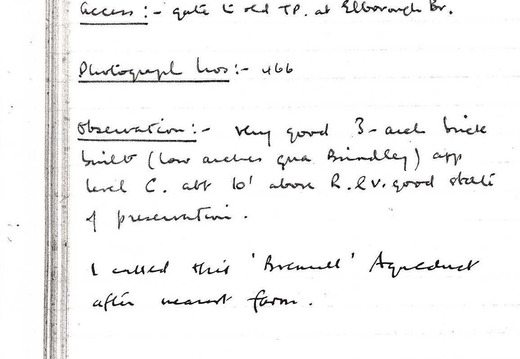 Access :- gate to old T.P. at Elborough Br.
Photograph Nos :- 466
Observation :- Very good 3-arch brick
built (low arches qua Brindley) app
level C. abt 10' above R. & v. good state
of preservation.
I called this ' ' Aqueduct
after nearest farm.